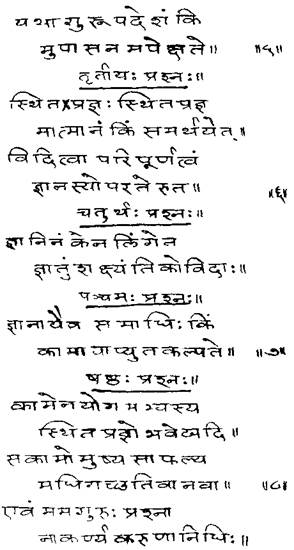 यथा गुरूपदेशं कि
मुपासनमपेक्षते॥ ॥५॥
तृतीयः प्रश्नः॥
स्थितप्रज्ञः स्थितप्रज्ञ
मात्मानं किं समर्थयेत्।
विदित्वा परिपूर्णत्वं
ज्ञानस्योपरतेरुत॥ ॥६॥
चतुर्थः प्रश्नः॥
ज्ञानिनं केन लिंगेन
ज्ञातुं शक्ष्यंति कोविदाः॥
पञ्चमः प्रश्नः॥
ज्ञानायैव समाधिः किं
कामायाप्युत कल्पते॥ ॥७॥
षष्ठः प्रश्नः॥
कामेन योगमभ्यस्य
स्थितप्रज्ञो भवेद्यदि॥
सकामोमुष्य साफल्य
मधिगच्छति वा नवा॥ ॥८॥
एवं मम गुरुः प्रश्ना
नाकर्ण्य करुणानिधिः॥